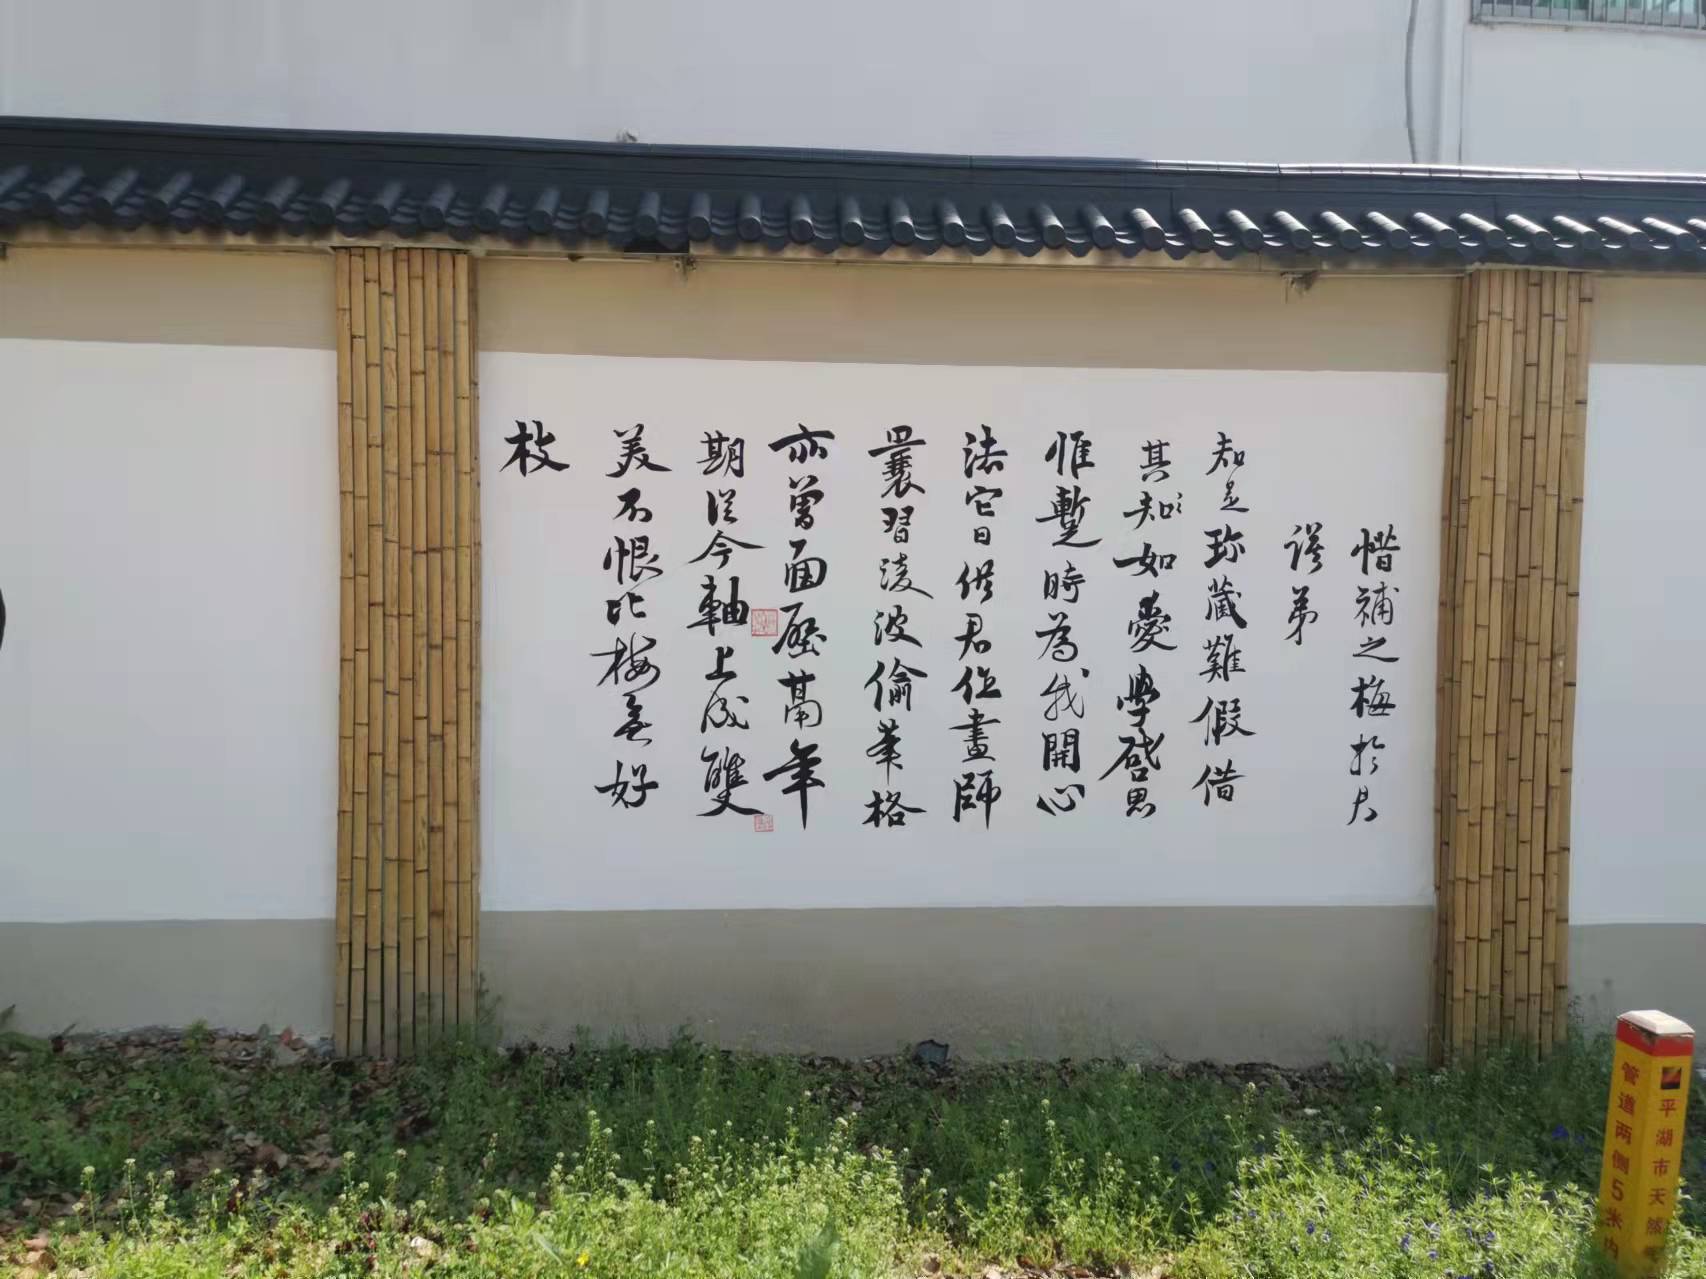 惜補之梅於君
謨弟
知是珎藏難假借
其知如愛學啓思
惟蹔時為我開心
法它日供君作畫師
曩習淩波偷華格
亦曾面壁鬲年
期從今軸上成雙
美不恨比梅無好
枝
平湖市天然
管道两侧5米内